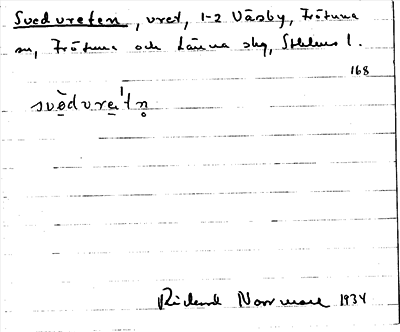 Svedvreten, vret, 1-2 Väsby, Frötuna
sn, Frötuna och Länna skg, Sthlms l.
168
svèdvre'tn̥
Rickard Norrman 1934